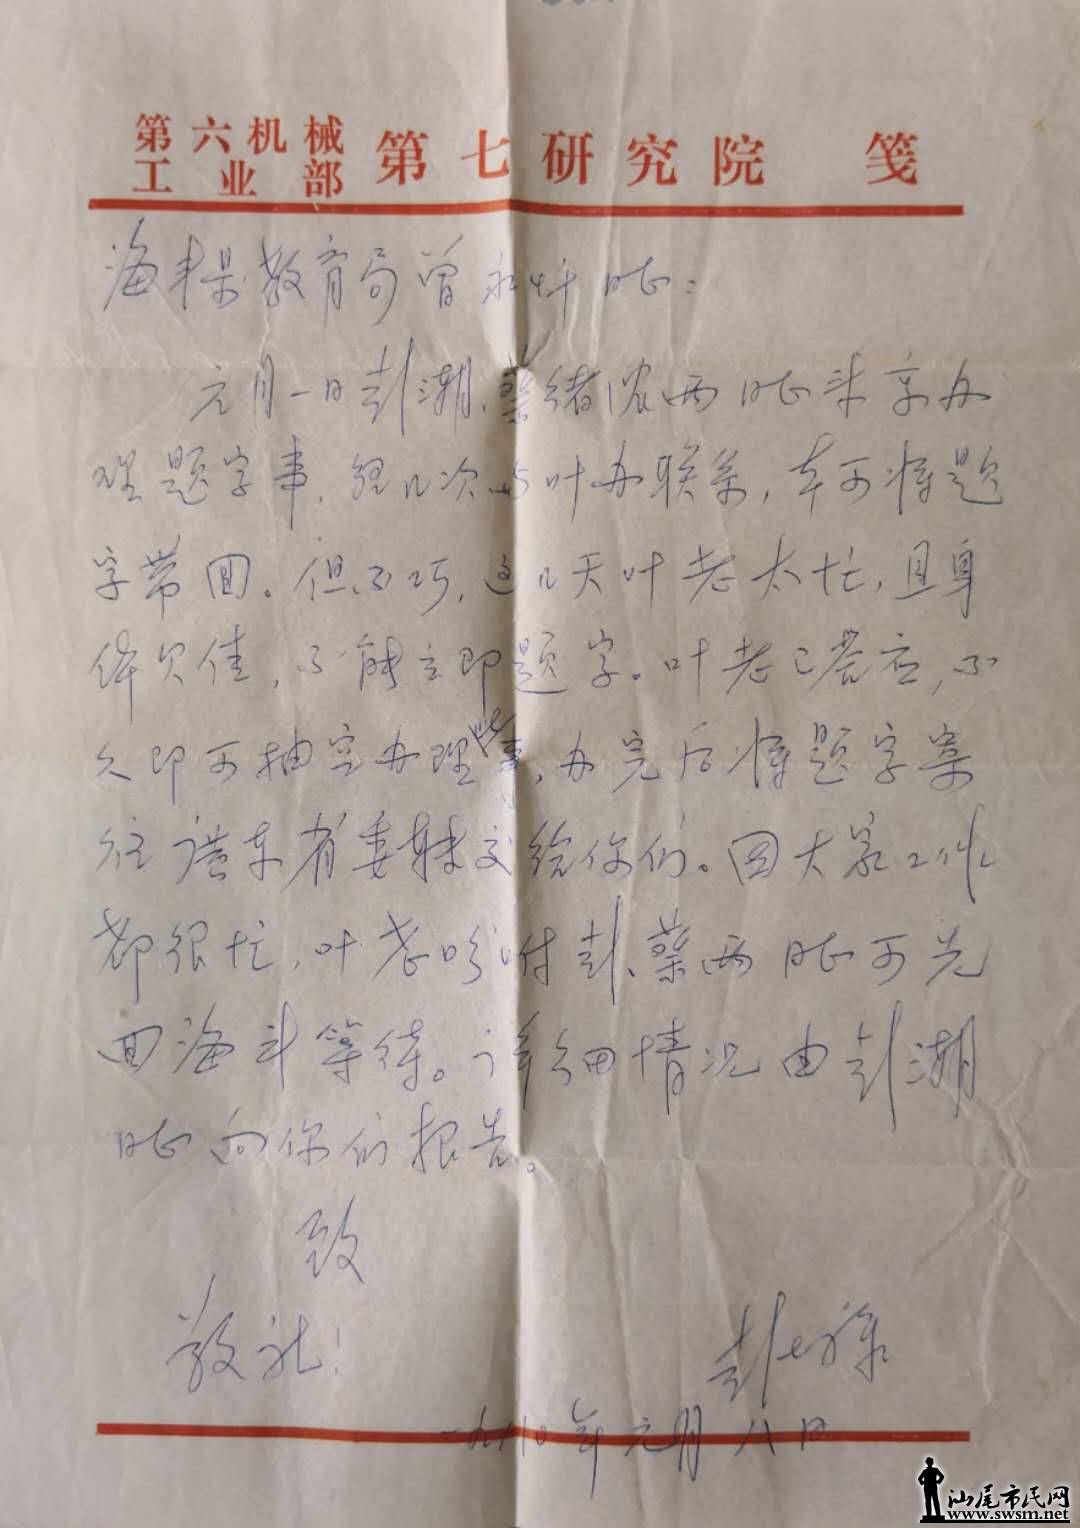 第六机械工业部 第七研究院 笺
海丰县教育局曾永忏同志：
元月一日彭潮、蔡绪浓两同志来京办
理题字事，经几次与叶办联系，本可将题
字带回。但不巧，这几天叶老太忙，且身
体欠佳，不能立即题字。叶老已答应，不
久即可抽空办理此事，办完后将题字寄
往广东省委转交给你们。因大家工作
都很忙，叶老吩咐彭、蔡两同志可先
回海丰等待。详细情况由彭潮
同志向你们报告。
致
敬礼！
彭
一九八〇年元月八日
汕尾市民网
www.swsm.net